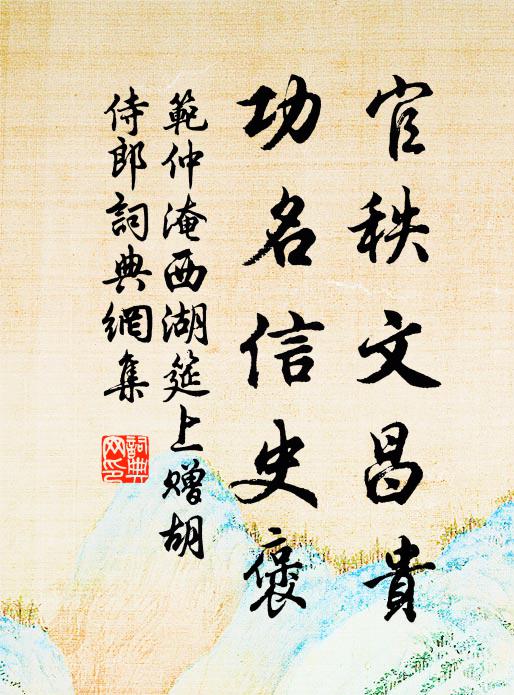 官秩文昌貴
功名信史褒
範仲淹西湖筵上贈胡
侍郎詞典網集
詞典網印